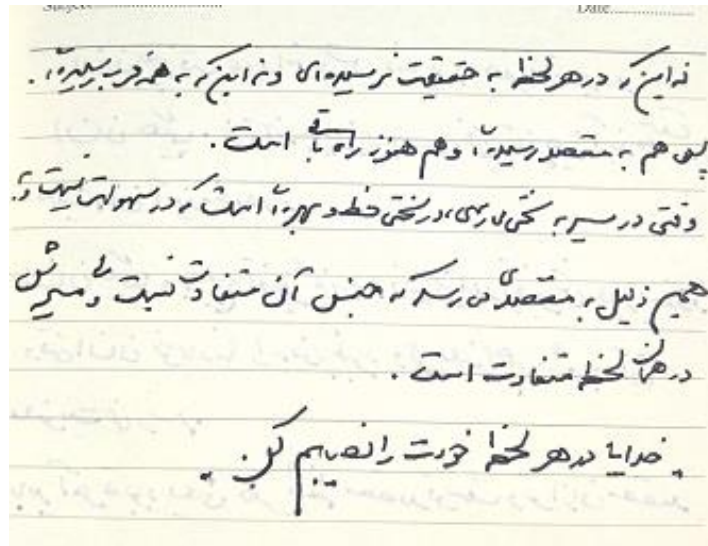 Subject
Date
نه این که در هر لحظه به حقیقت نرسیده‌ای و نه این که به همه قرب رسیده‌ای.
پس هم به مقصد رسیده‌ای و هم هنوز راه باقی است.
وقتی در مسیر به سختی می‌رسی، در سختی حظ و بهره‌ای است که در سهولت نیست و به
همین دلیل به مقصدی می‌رسد که جنس آن متفاوت نیست ولی مسیرش
در همان لحظه متفاوت است.
"خدایا در هر لحظه خودت را نصیبم کن."